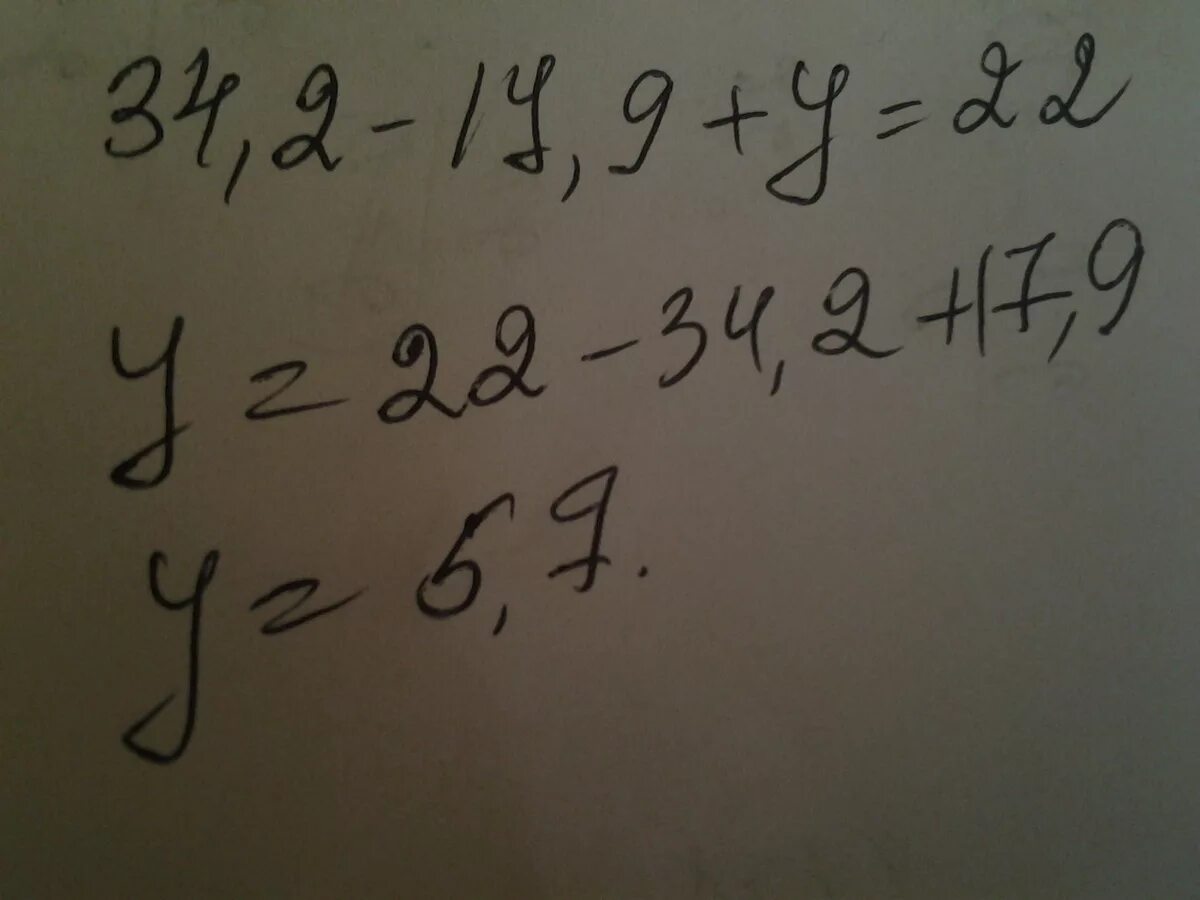 34,2-17,9+y=22
y=22-34,2+17,9
y=5,7.